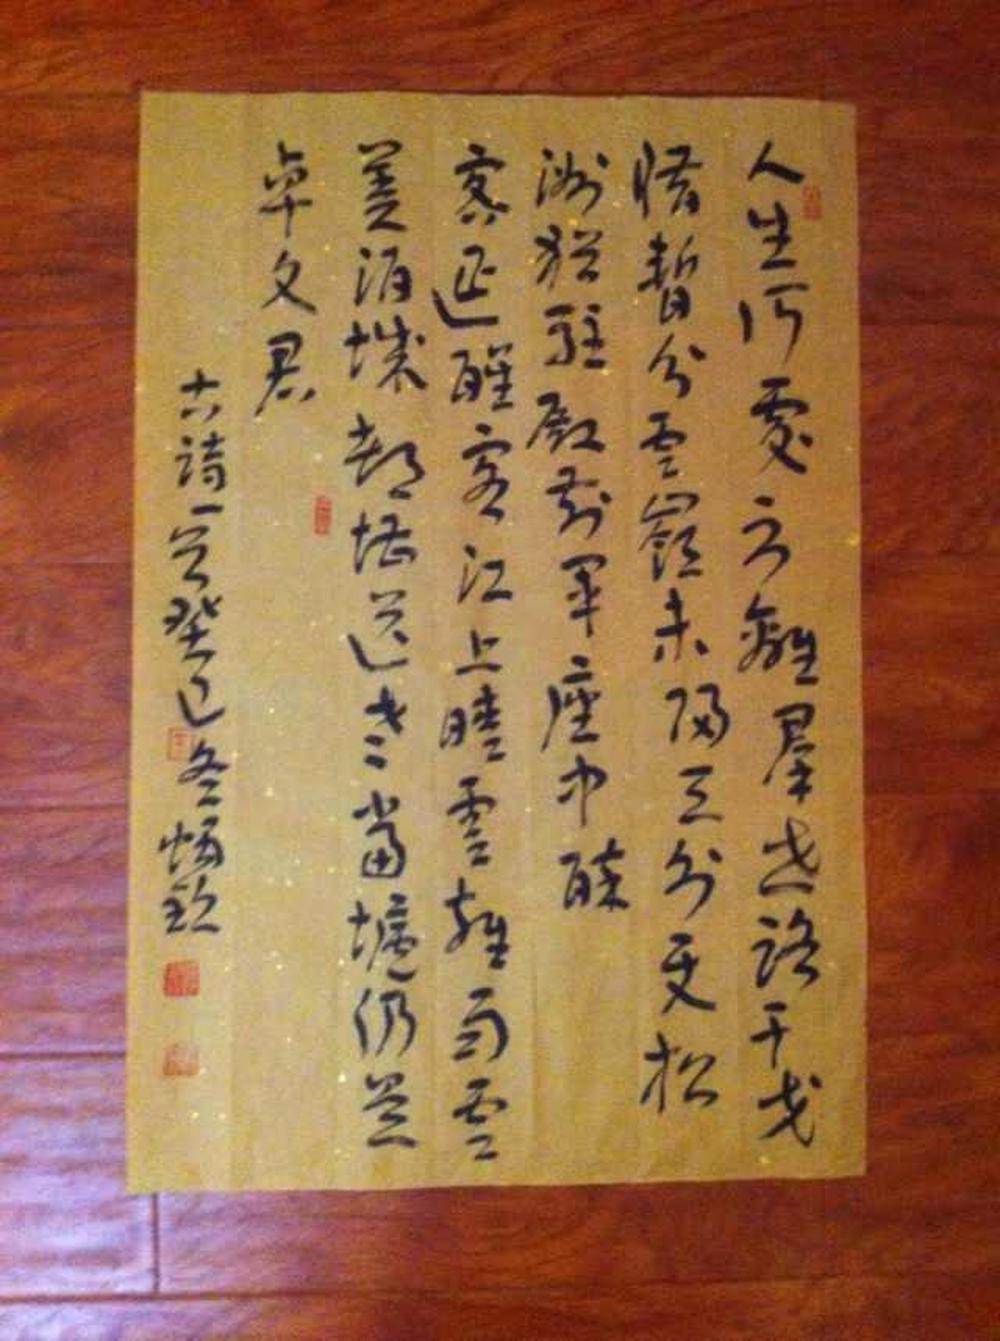 人生何處不離群世路干戈
惜暫分雪嶺未歸天外使松
洲猶駐殿前軍座中醉
客延醒客江上晴雲雜雨雲
美酒城都堪送老當壚仍是
卓文君
古詩一首癸巳冬